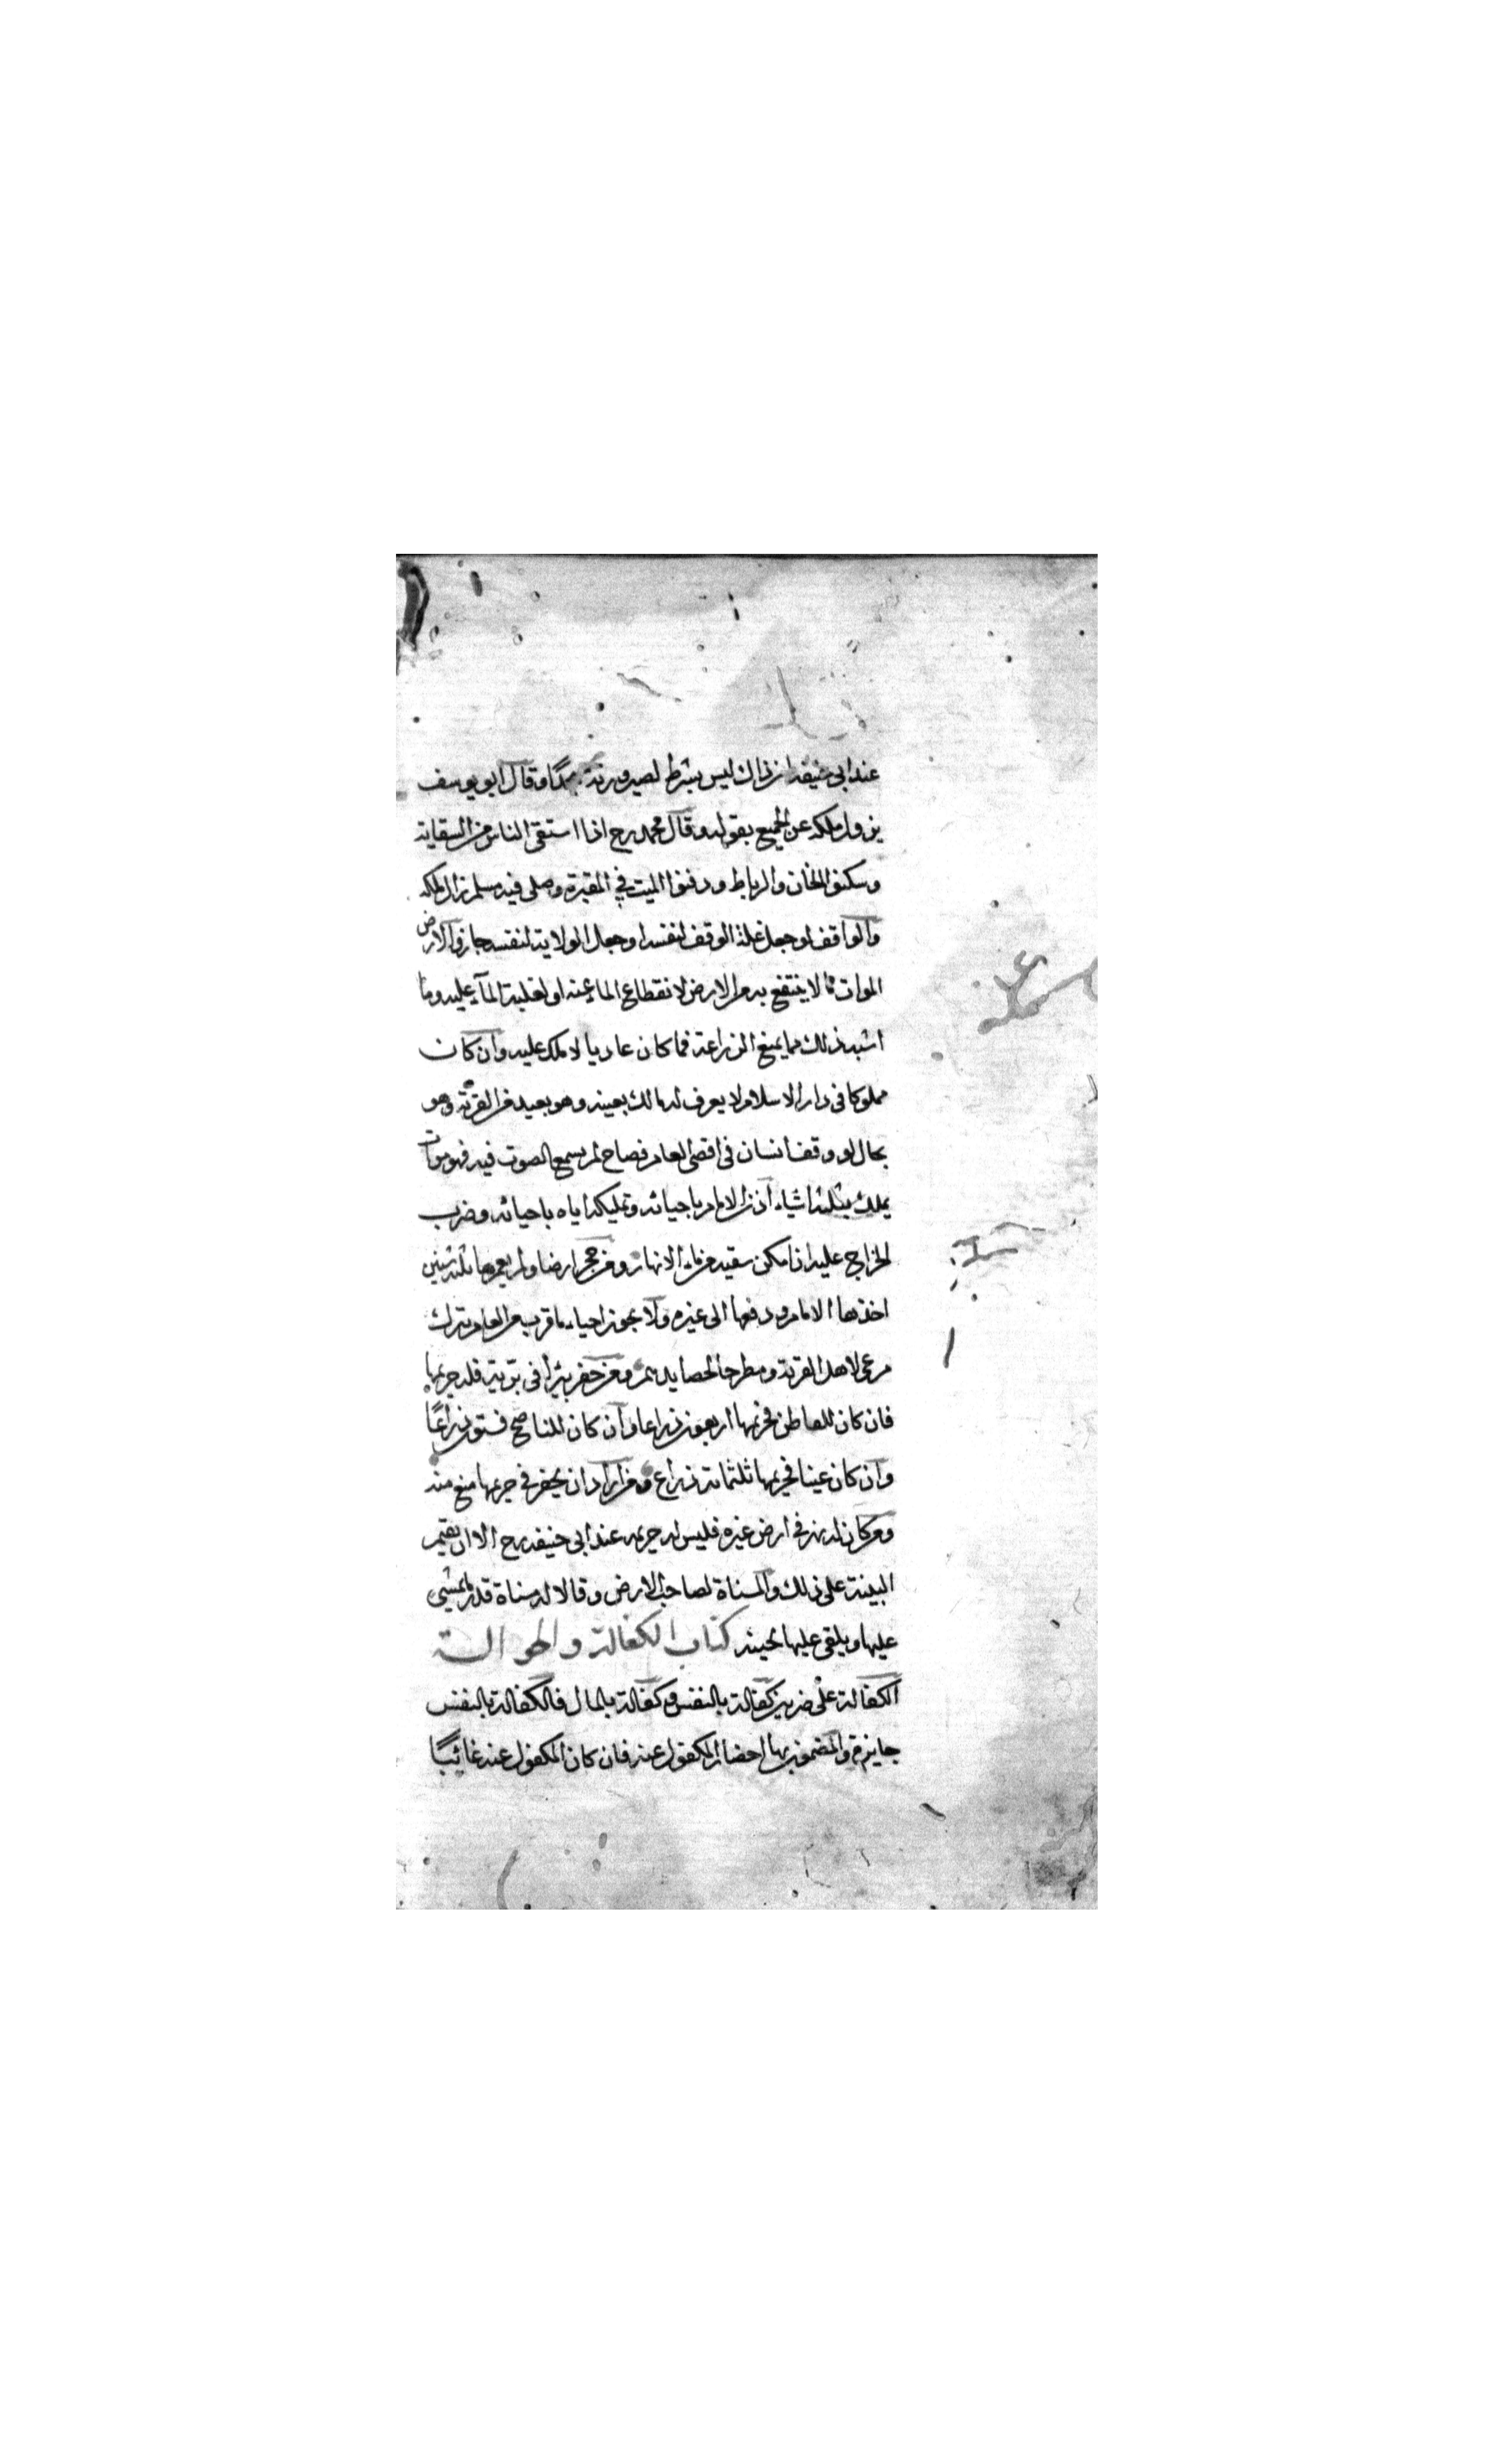 عند ابى حنيفة ان ذلك ليس بشرط لصيرورته مسجدًا وقال ابو يوسف
يزول ملكه عن الجميع بقوله وقال محمد رح اذا استقى الناس من السقاية
وسكنوا الخان والرباط ودفنوا الميت في المقبرة وصلى فيه مسلم زال ملكه
والواقف لو جعل غلة الوقف لنفسه او جعل الولاية لنفسه جاز والارض
الموات ما لا ينتفع به من الارض لانقطاع الماء عنه او لغلبة الماء عليه وما
اشبه ذلك مما يمنع الزراعة فما كان عاديا لا ملك عليه وان كان
مملوكا فى دار الاسلام لا يعرف له مالك بعينه وهو بعيد من القرية وهو
بحال لو وقف انسان فى اقصى العامر فصاح لم يسمع الصوت فيه فهو موات
يملك بثلثة اشياء اذن الامام باحيائه وتمليكه اياه باحيائه وضرب
الخراج عليه ان امكن سقيه من ماء الانهار ومن حجر ارضا ولم يعمرها ثلث سنين
اخذها الامام ودفعها الى غيره ولا يجوز احياء ما قرب من العامر ويترك
مرعى لاهل القرية ومطرحا لحصايدهم ومن حفر بئرا فى برية فله حريمها
فان كان للعاطن فحريمها اربعون ذراعا وان كان للناضح فستون ذراعًا
وان كان عينا فحريمها ثلثمائة ذراع ومن اراد ان يحفر في حريمها منع منه
ومن كان له نهر في ارض غيره فليس له حريمه عند ابى حنيفة رح الا ان يقيم
البينة على ذلك والمسناة لصاحب الارض وقالا له مسناة قدر ما يمشي
عليها ويلقى عليها طينه كتاب الكفالة والحوالة
الكفالة على ضربين كفالة بالنفس وكفالة بالمال فالكفالة بالنفس
جايزة والمضمون بها احضار المكفول عنه فان كان المكفول عنه غائبًا